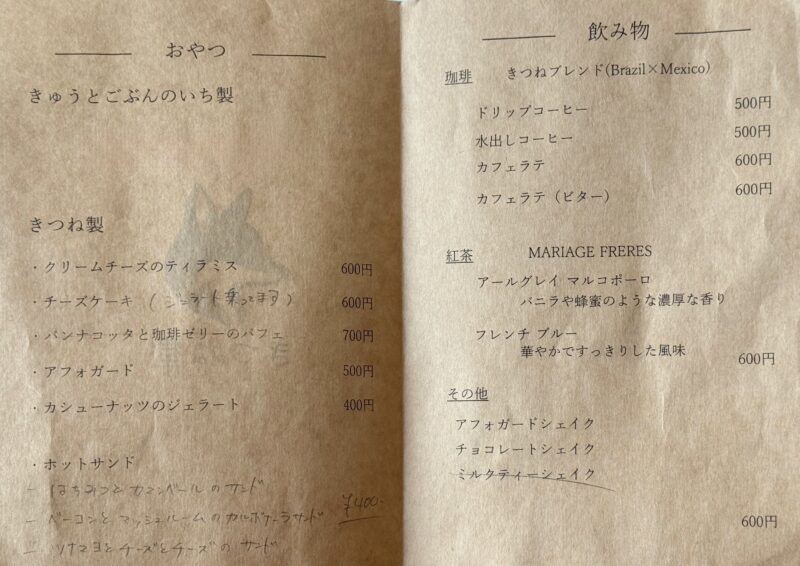 おやつ
きゅうとごぶんのいち製
きつね製
・クリームチーズのティラミス 600円
・チーズケーキ (ジェラート乗ってます) 600円
・パンナコッタと珈琲ゼリーのパフェ 700円
・アフォガード 500円
・カシューナッツのジェラート 400円
・ホットサンド
- はちみつとカマンベールのサンド
- ベーコンとマッシュルームのカルボナーラサンド ¥400.
- ツナマヨとチーズとチーズのサンド
飲み物
珈琲 きつねブレンド(Brazil×Mexico)
ドリップコーヒー 500円
水出しコーヒー 500円
カフェラテ 600円
カフェラテ(ビター) 600円
紅茶 MARIAGE FRERES
アールグレイ マルコポーロ
バニラや蜂蜜のような濃厚な香り
フレンチ ブルー
華やかですっきりした風味 600円
その他
アフォガードシェイク
チョコレートシェイク
ミルクティーシェイク
600円